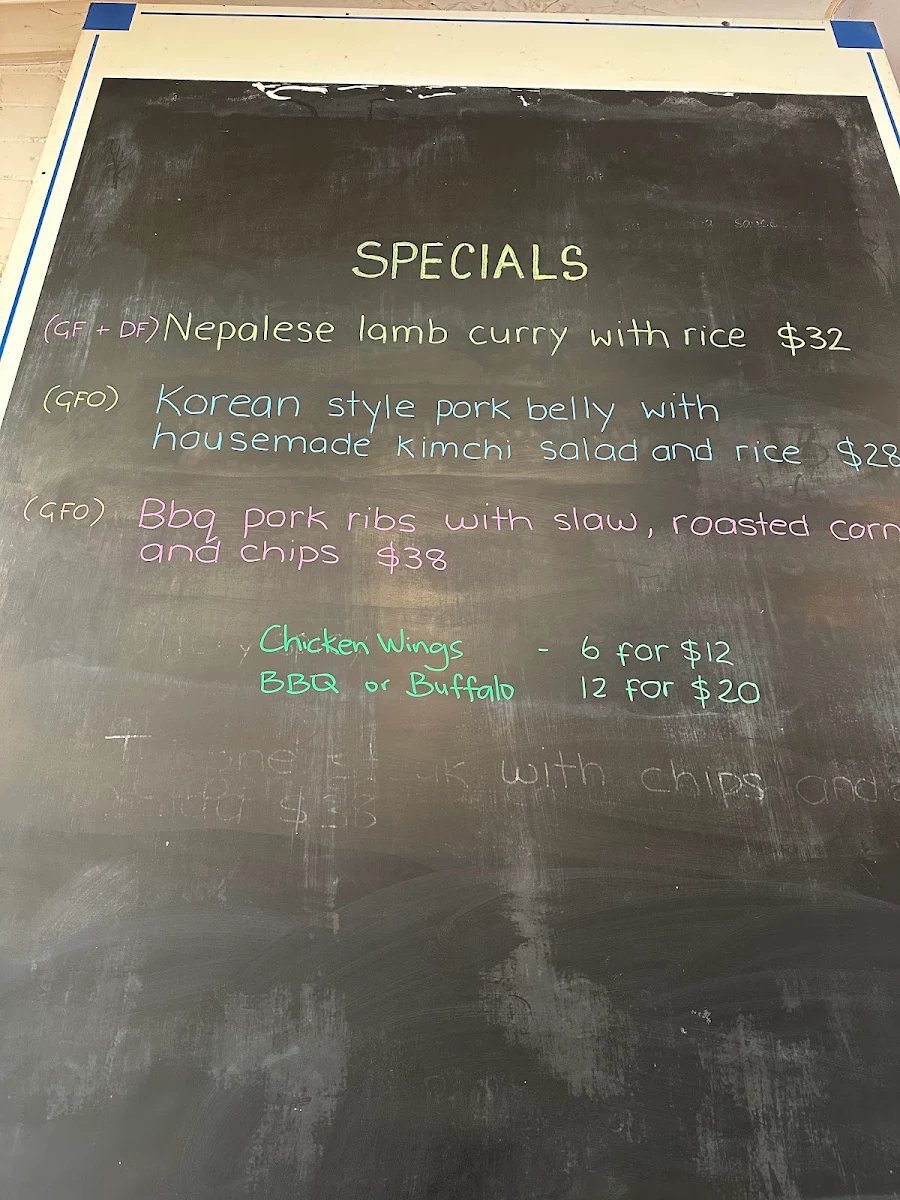 SPECIALS
(GF + DF) Nepalese lamb curry with rice $32
(GFO) Korean style pork belly with
housemade kimchi salad and rice $28
(GFO) Bbq pork ribs with slaw, roasted corn
and chips $38
Chicken Wings - 6 for $12
BBQ or Buffalo 12 for $20
with chips and
$33